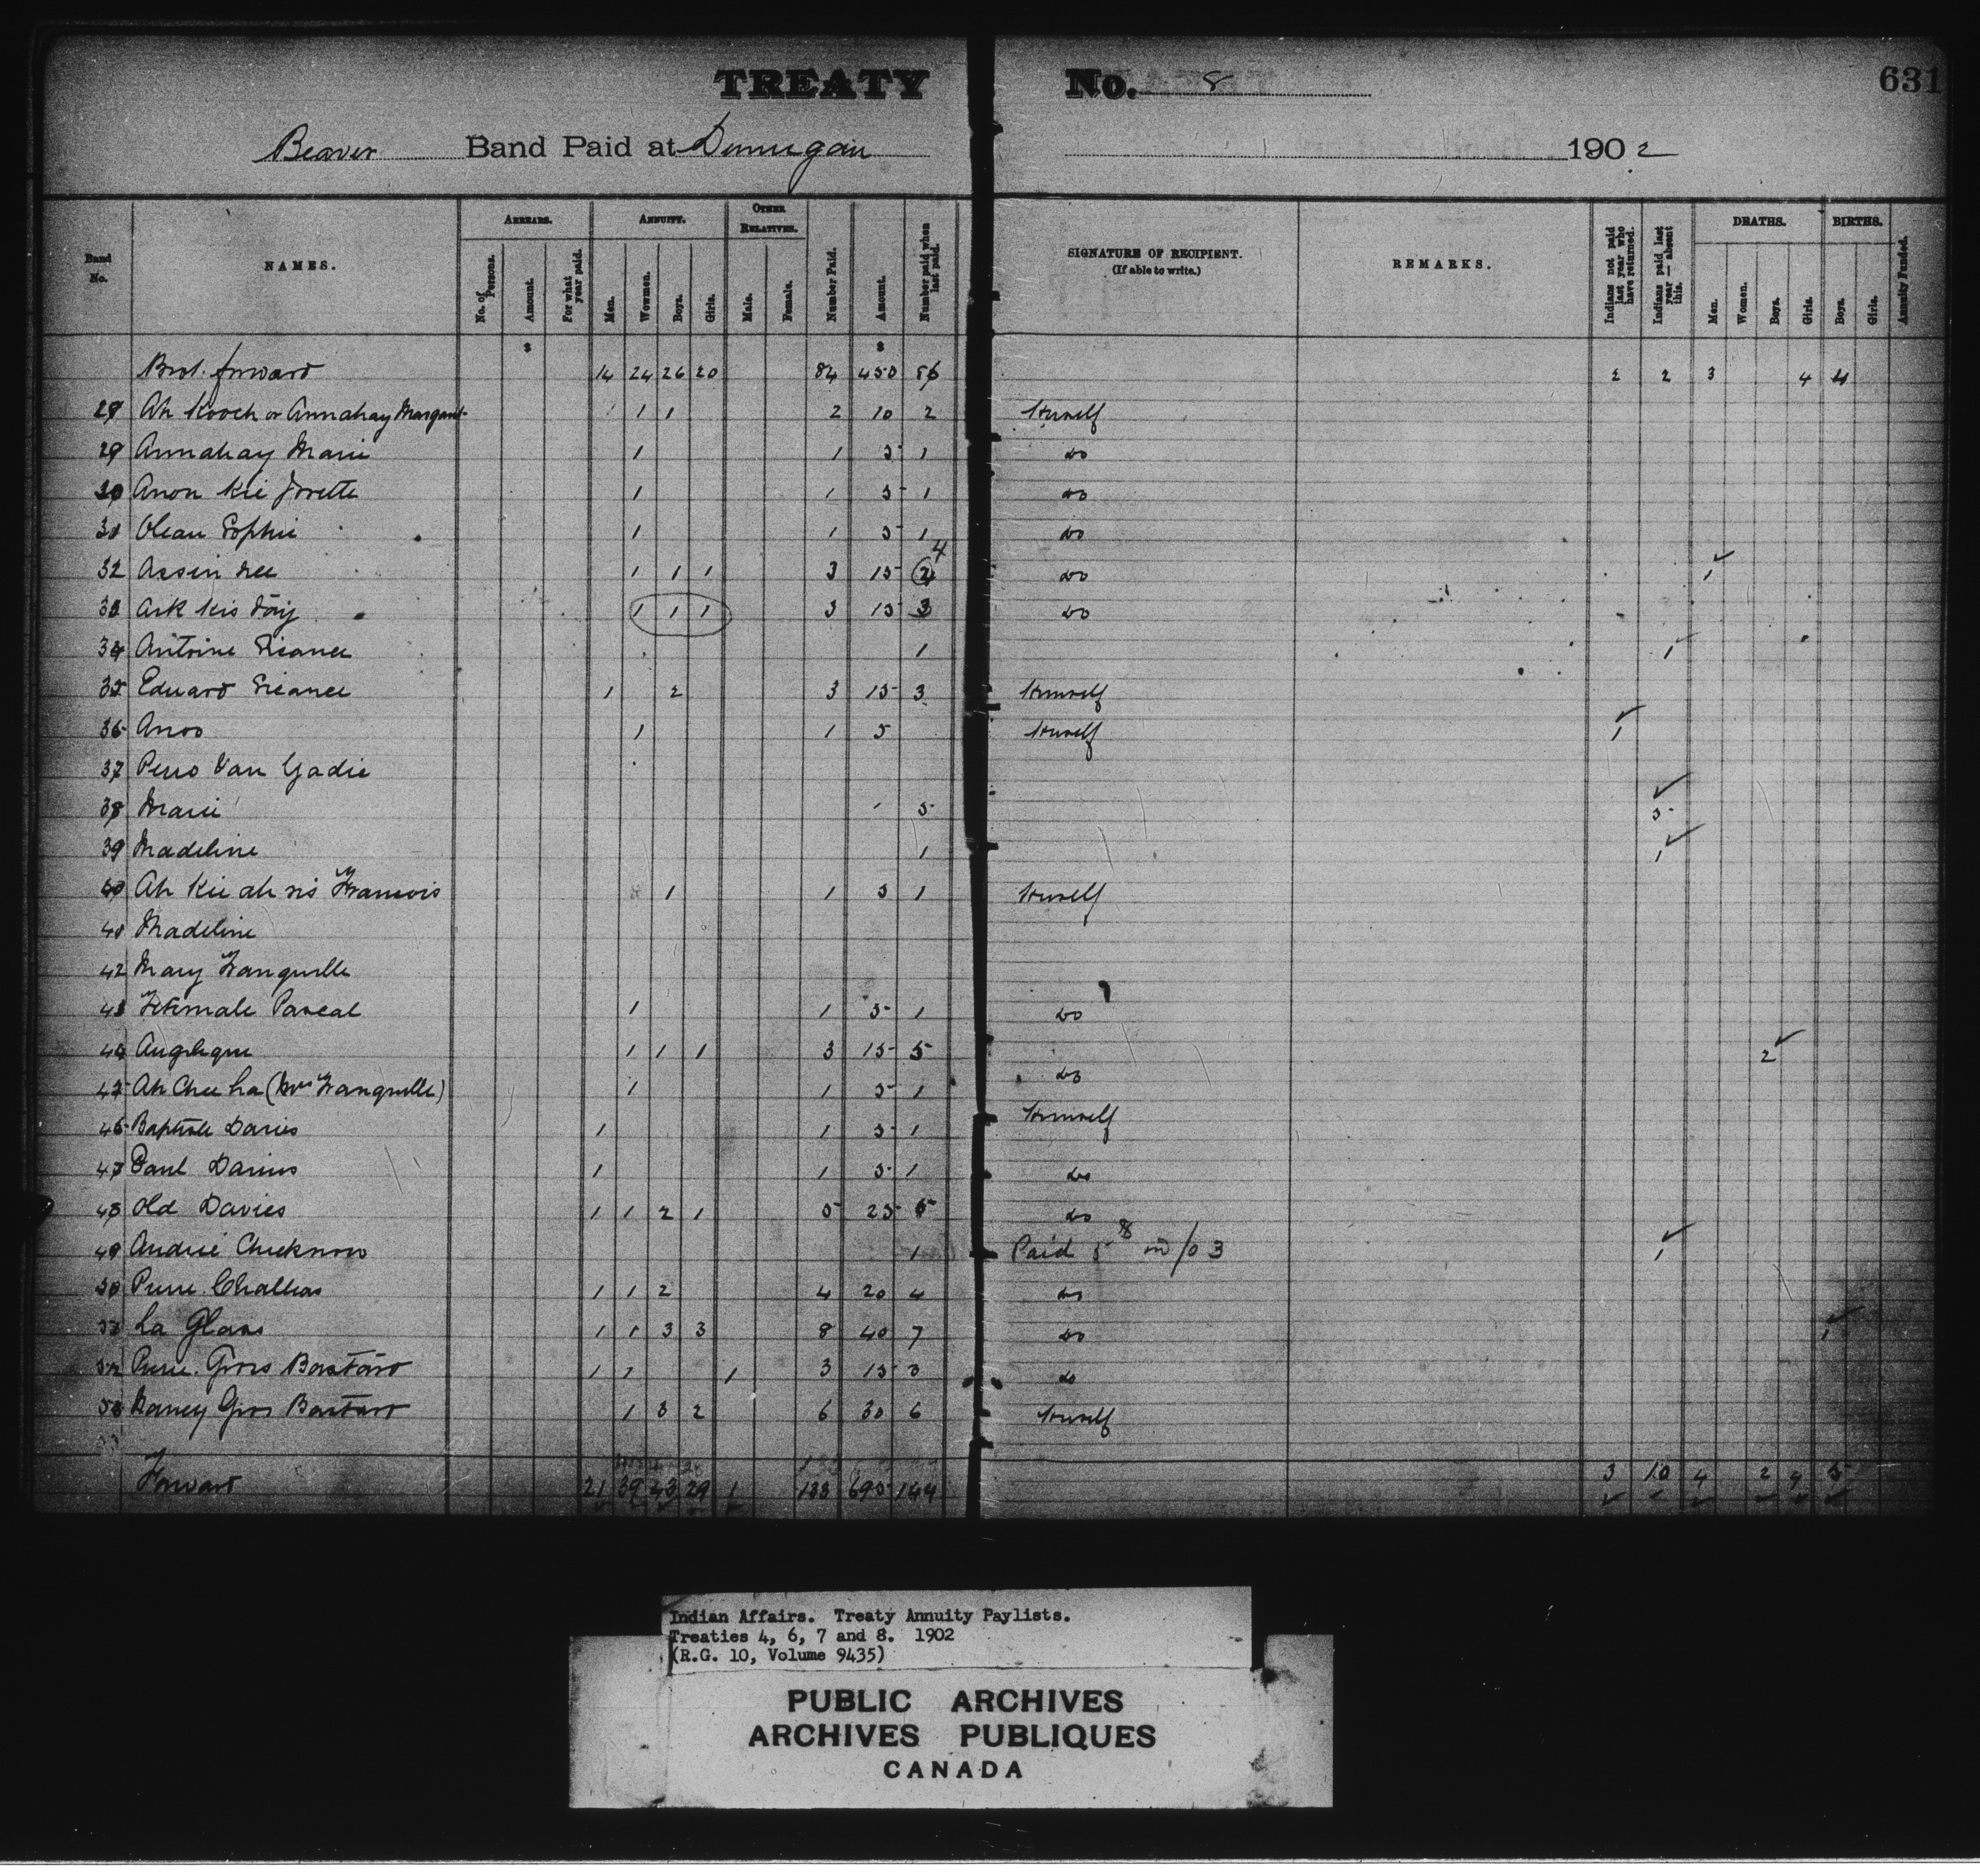 TREATY No. 8
631
Beaver Band Paid at Dunvegan 1902
Band No. NAMES. ARREARS. No. of Persons. Amount. For what year paid. ANNUITY. Men. Women. Boys. Girls. OTHER RELATIVES. Male. Female. Number Paid. Amount. Number paid when last paid. SIGNATURE OF RECIPIENT. (If able to write.) REMARKS. Indians not paid last year who have returned. Indians paid last year — absent this. DEATHS. Men. Women. Boys. Girls. BIRTHS. Boys. Girls. Annuity Funded.
$ $
Brot. forward 14 24 26 20 84 450 86 2 2 3 4 4
28 Ah Kooch or Annahay Margaret 1 1 2 10 2 Herself
29 Annahay Marie 1 1 5 1 do
30 Anon Kie Josette 1 1 5 1 do
31 Olean Sophie 1 1 5 1 do
32 Assin nee 1 1 1 3 15 4 do 1
33 Ask kis day 1 1 1 3 15 3 do
34 Antoine 1 1
35 Edward 1 2 3 15 3 Himself
36 Anoo 1 1 5 Herself 1
37 Van Gadie
38 Marie 5 5
39 Madeline 1 1
40 Ah Kie ah sis Francois 1 1 5 1 Herself
41 Madeline
42 Mary Tranquille
43 Pascal 1 1 5 1 do
44 Angelique 1 1 1 3 15 5 do 2
45 Ah Chee La (Mrs Tranquille) 1 1 5 1
46 Baptiste Davies 1 1 5 1 Himself
47 Paul Davies 1 1 5 1 do
48 Old Davies 1 1 2 1 5 25 5 do
49 Andrie Cheeknow 1 Paid 5 in /03 1
50 Pierre Challeas 1 1 2 4 20 4 do
51 La Glass 1 1 3 3 8 40 7 do 1
52 Pierre Gros Bastard 1 1 1 3 15 3 do
53 Nancy Gros Bastard 1 3 2 6 30 6 Herself
Forward 21 39 43 29 1 133 695 144 3 10 4 2 4 5
Indian Affairs. Treaty Annuity Paylists.
Treaties 4, 6, 7 and 8. 1902
(R.G. 10, Volume 9435)
PUBLIC ARCHIVES
ARCHIVES PUBLIQUES
CANADA